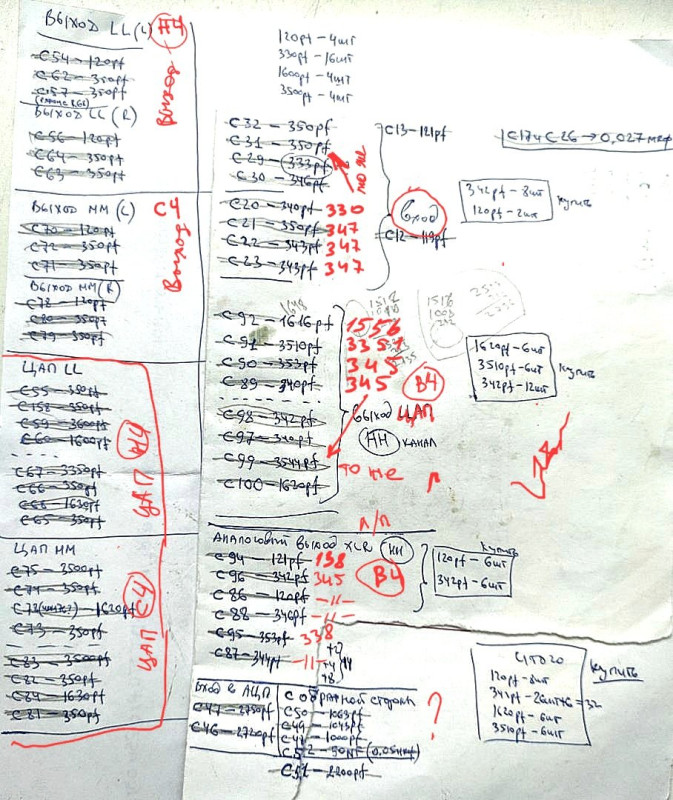 ВЫХОД LL (L) Н4
C54 - 120pf
C62 - 350pf
C157 - 350pf
ВЫХОД
ВЫХОД LL (R)
C56 - 120pf
C64 - 350pf
C63 - 350pf
ВЫХОД MM (L) C4
C70 - 120pf
C72 - 350pf
C71 - 350pf
ВЫХОД
ВЫХОД MM (R)
C78 - 120pf
C80 - 350pf
C79 - 350pf
ЦАП LL
C55 - 350pf
C158 - 350pf
C59 - 3600pf
C60 - 1600pf
C67 - 3350pf
C66 - 350pf
C68 - 1630pf
C65 - 350pf
ЦАП Н4
ЦАП MM
C75 - 3500pf
C74 - 350pf
1620pf
C73 - 350pf
C83 - 3500pf
C82 - 350pf
C84 - 1630pf
C81 - 350pf
ЦАП C4
120pf - 4шт
330pf - 16шт
1600pf - 4шт
3500pf - 4шт
C32 - 350pf
C31 - 350pf
C29 - 333pf
C30 - 346pf
то же
C20 - 340pf 330
C21 - 350pf 347
C22 - 343pf 347
C23 - 343pf 347
C13 - 121pf
Вход
C12 - 119pf
C17 и C26 → 0,027 мкф
342pf - 8шт
120pf - 2шт
купить
C92 - 1616pf 1556
C91 - 3510pf 3351
C90 - 353pf 345
C89 - 340pf 345
B4
C98 - 342pf
C97 - 340pf
C99 - 3544pf
C100 - 1620pf
ВЫХОД ЦАП
НН КАНАЛ
то же л
1620pf - 6шт
3510pf - 6шт
342pf - 12шт
купить
л/п
АНАЛОГОВЫЙ ВЫХОД XLR НН
C94 - 121pf 138
C96 - 342pf 345
C86 - 120pf -11-
C88 - 346pf -11-
C95 - 353pf 338
C87 - 344pf -11-
B4
купить
120pf - 6шт
342pf - 6шт
ВХОД в АЦП
C47 - 2750pf
C46 - 2720pf
С ОБРАТНОЙ СТОРОНЫ
C50 - 1063pf
C49 - 1043pf
C48 - 1000pf
C52 - 50NF
C51 - 2200pf
?
ИТОГО
120pf - 8шт
1620pf - 6шт
3510pf - 6шт
купить